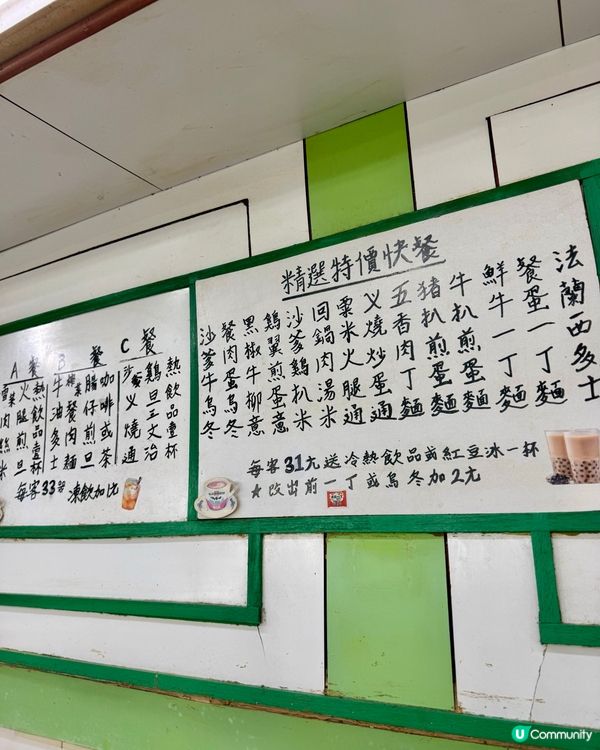 A餐
B餐
C餐
雪菜肉絲米
火腿煎旦
熱飲品壹杯
牛油多士
榨菜餐肉麵
腸仔煎旦
咖啡或茶
义燒通
鷄旦王文治
熱飲品壹杯
每客33 凍飲加比
精選特價快餐
法蘭西多士
餐蛋一丁麵
鮮牛一丁麵
牛扒煎蛋麵
猪扒煎蛋麵
五香肉丁麵
义燒炒蛋通
粟米火腿通
回鍋肉湯米
沙爹鷄扒米
鷄翼煎蛋意
黑椒牛柳意
餐肉蛋烏冬
沙爹牛烏冬
每客31元送冷熱飲品或紅豆冰一杯
★改出前一丁或烏冬加2元
U Community